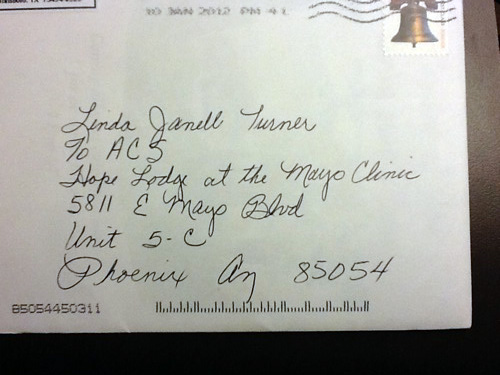 10 JAN 2012 PM 4 L
Linda Janell Turner
To ACS
Hope Lodge at the Mayo Clinic
5811 E Mayo Blvd
Unit 5-C
Phoenix Az 85054
85054450311